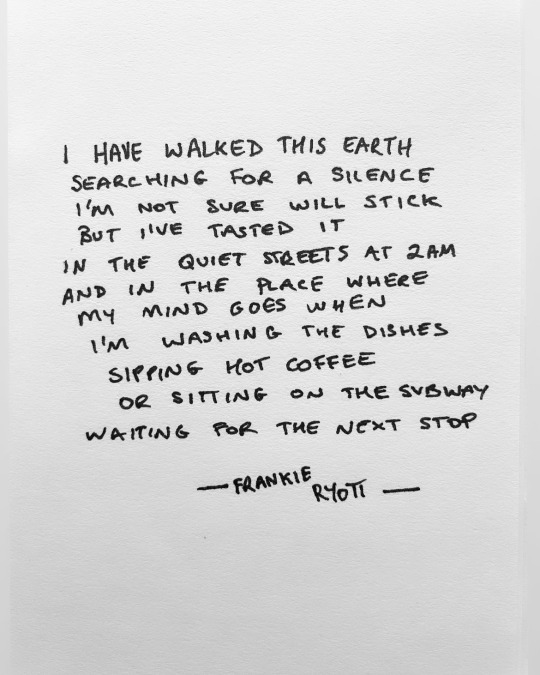 I HAVE WALKED THIS EARTH
SEARCHING FOR A SILENCE
I'M NOT SURE WILL STICK
BUT I'VE TASTED IT
IN THE QUIET STREETS AT 2AM
AND IN THE PLACE WHERE
MY MIND GOES WHEN
I'M WASHING THE DISHES
SIPPING HOT COFFEE
OR SITTING ON THE SUBWAY
WAITING FOR THE NEXT STOP
— FRANKIE
RYOTT —